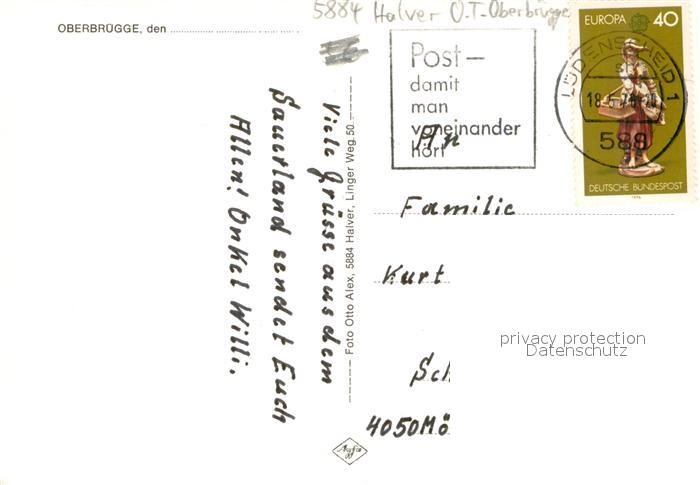 5884 Halver O.T.-Oberbrügge
OBERBRÜGGE, den
Viele Grüsse aus dem
Sauerland sendet Euch
Allen! Onkel Willi.
Foto Otto Alex, 5884 Halver, Linger Weg 50
Post—
damit
man
voneinander
hört
LÜDENSCHEID 1
588
EUROPA 40
DEUTSCHE BUNDESPOST
1976
An
Familie
Kurt
Sch
4050 Mö
privacy protection
Datenschutz
Agfa